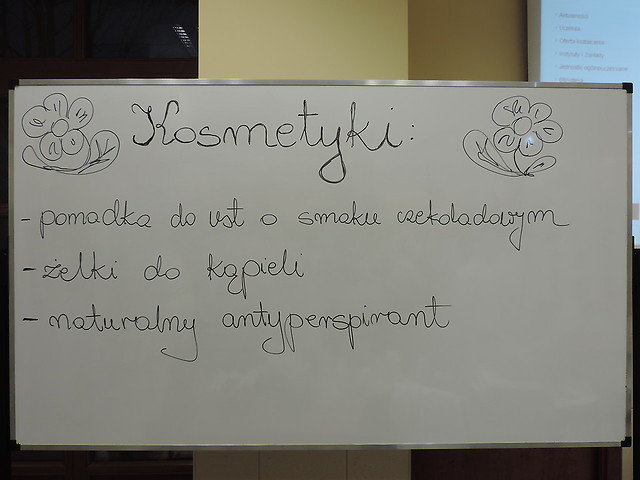 Kosmetyki:
- pomadka do ust o smaku czekoladowym
- żelki do kąpieli
- naturalny antyperspirant